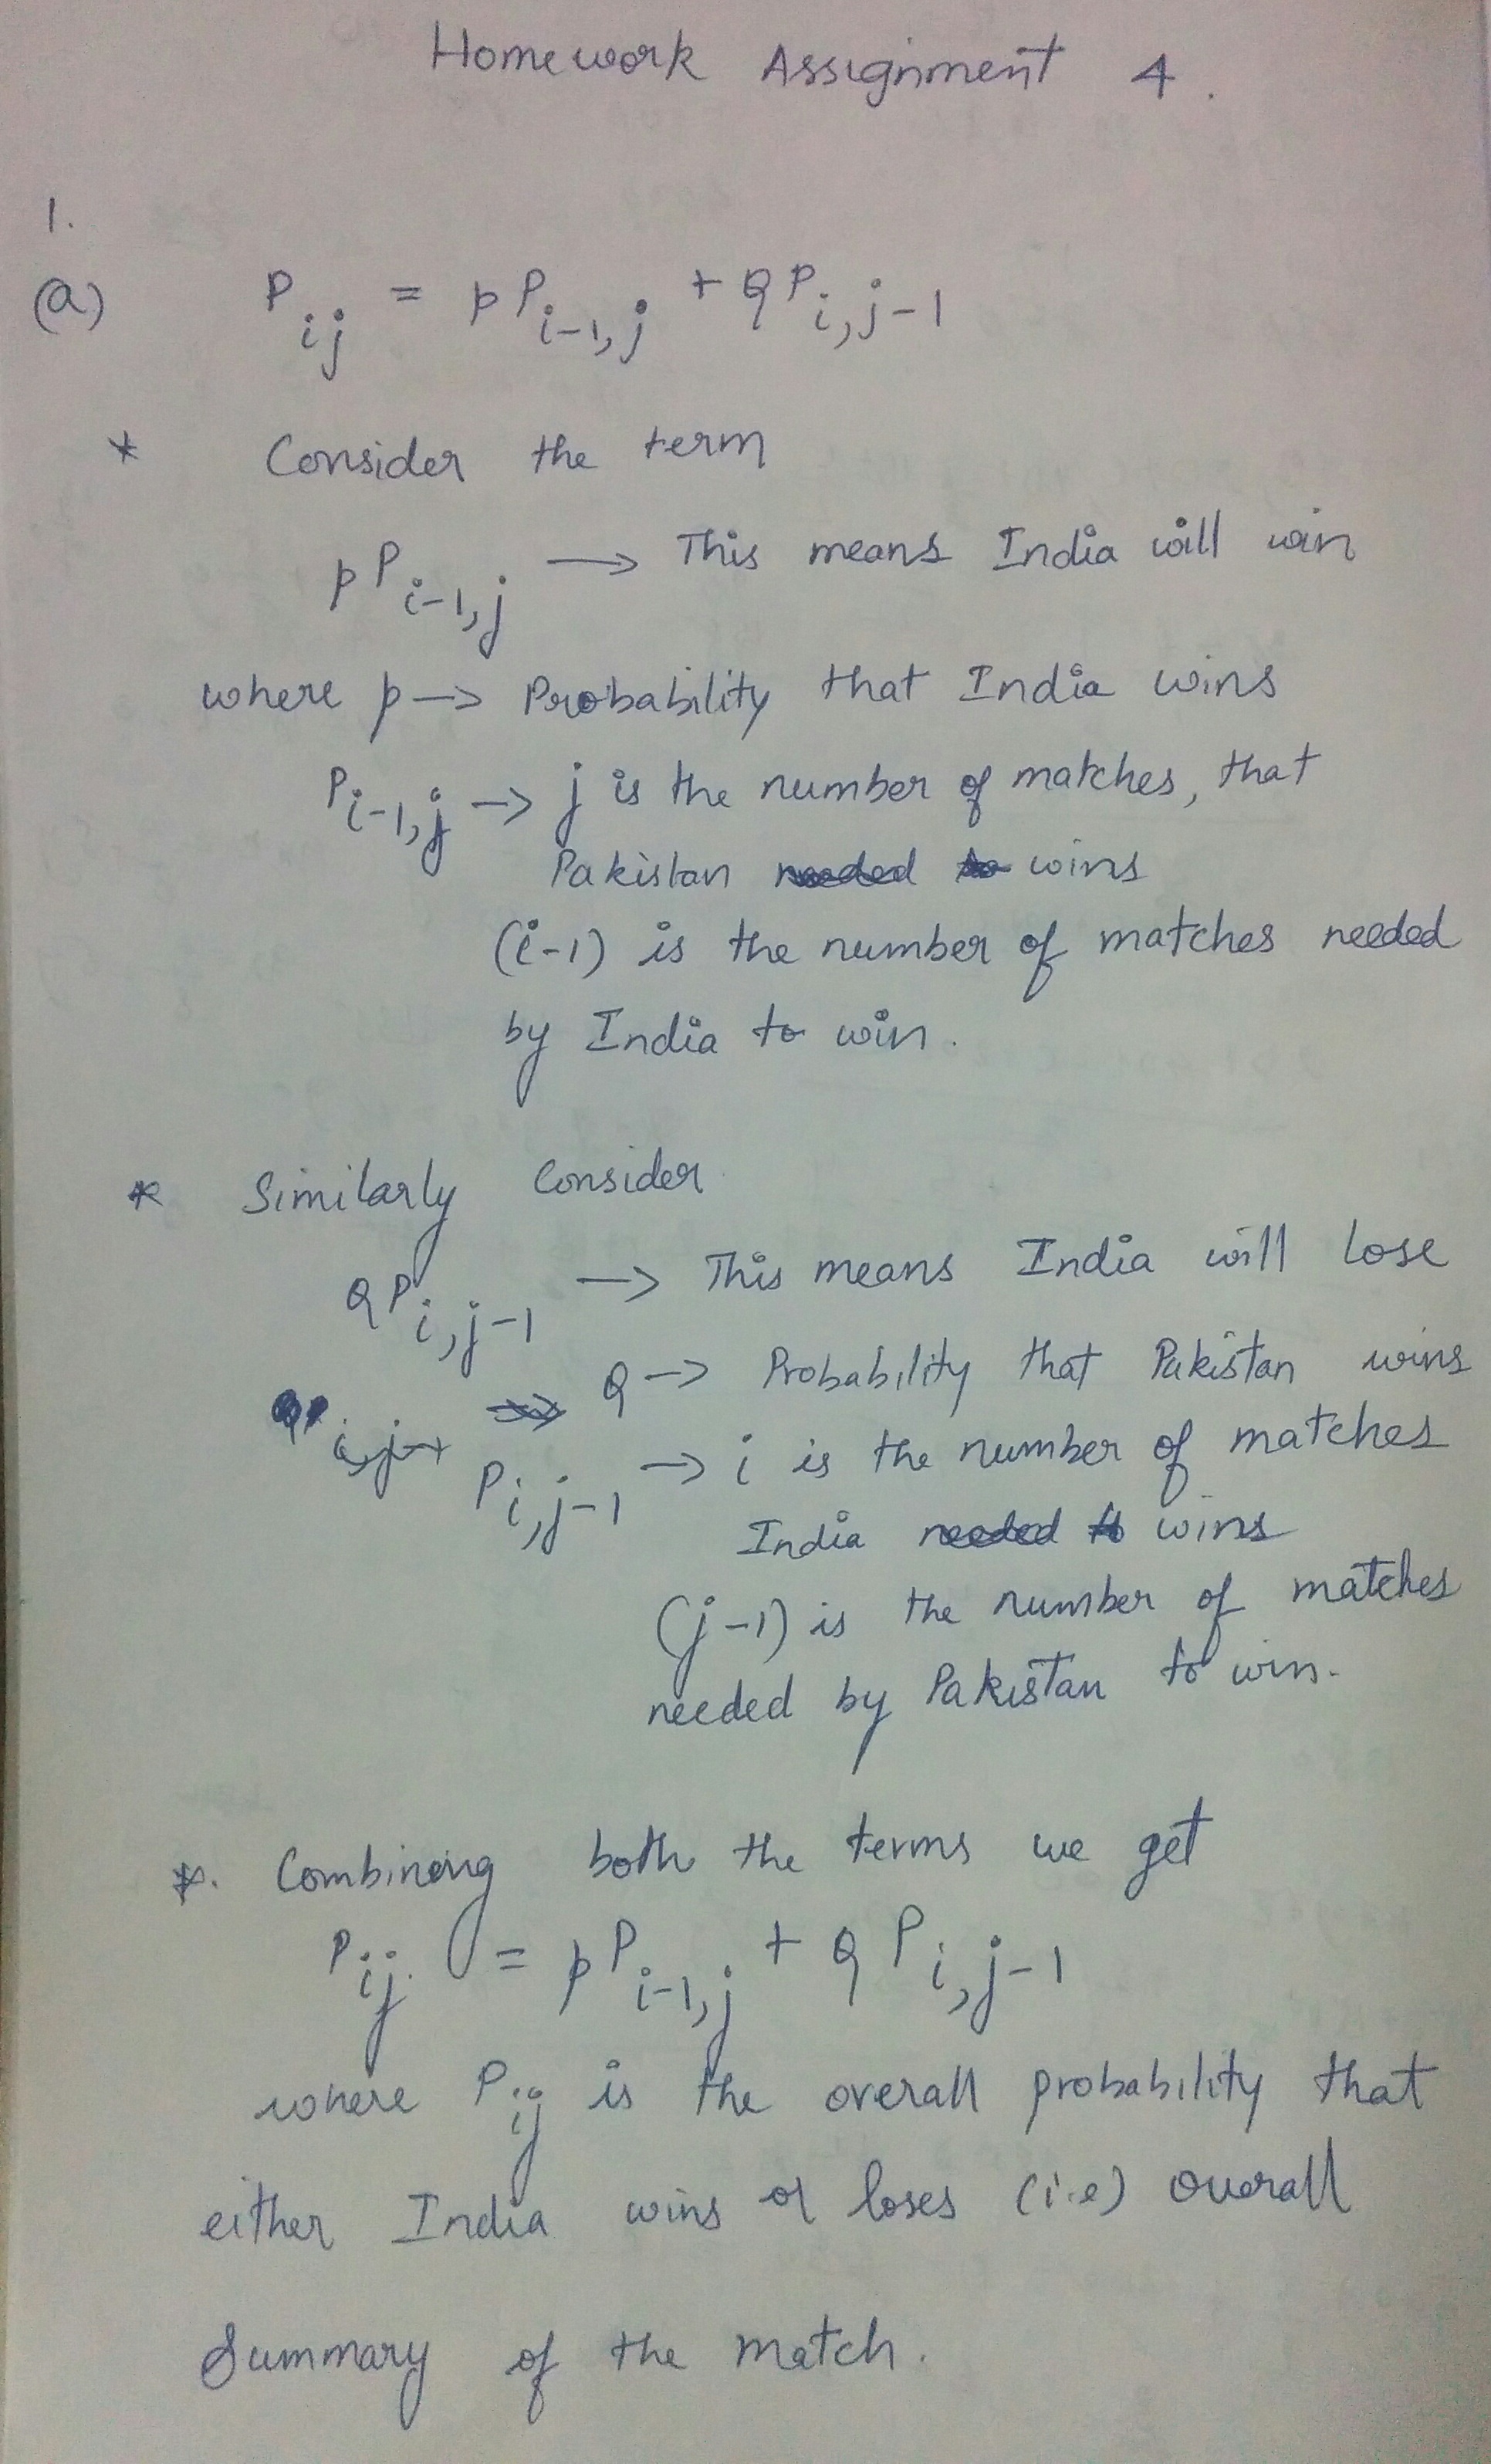 Homework Assignment 4.
1.
(a) P_ij = pP_i-1,j + QP_i,j-1
* Consider the term
pP_i-1,j → This means India will win
where p → Probability that India wins
P_i-1,j → j is the number of matches, that
Pakistan wins
(i-1) is the number of matches needed
by India to win.
* Similarly Consider
QP_i,j-1 → This means India will lose
Q → Probability that Pakistan wins
P_i,j-1 → i is the number of matches
India wins
(j-1) is the number of matches
needed by Pakistan to win.
*. Combining both the terms we get
P_ij = pP_i-1,j + QP_i,j-1
where P_ij is the overall probability that
either India wins or loses (i.e) overall
Summary of the match.